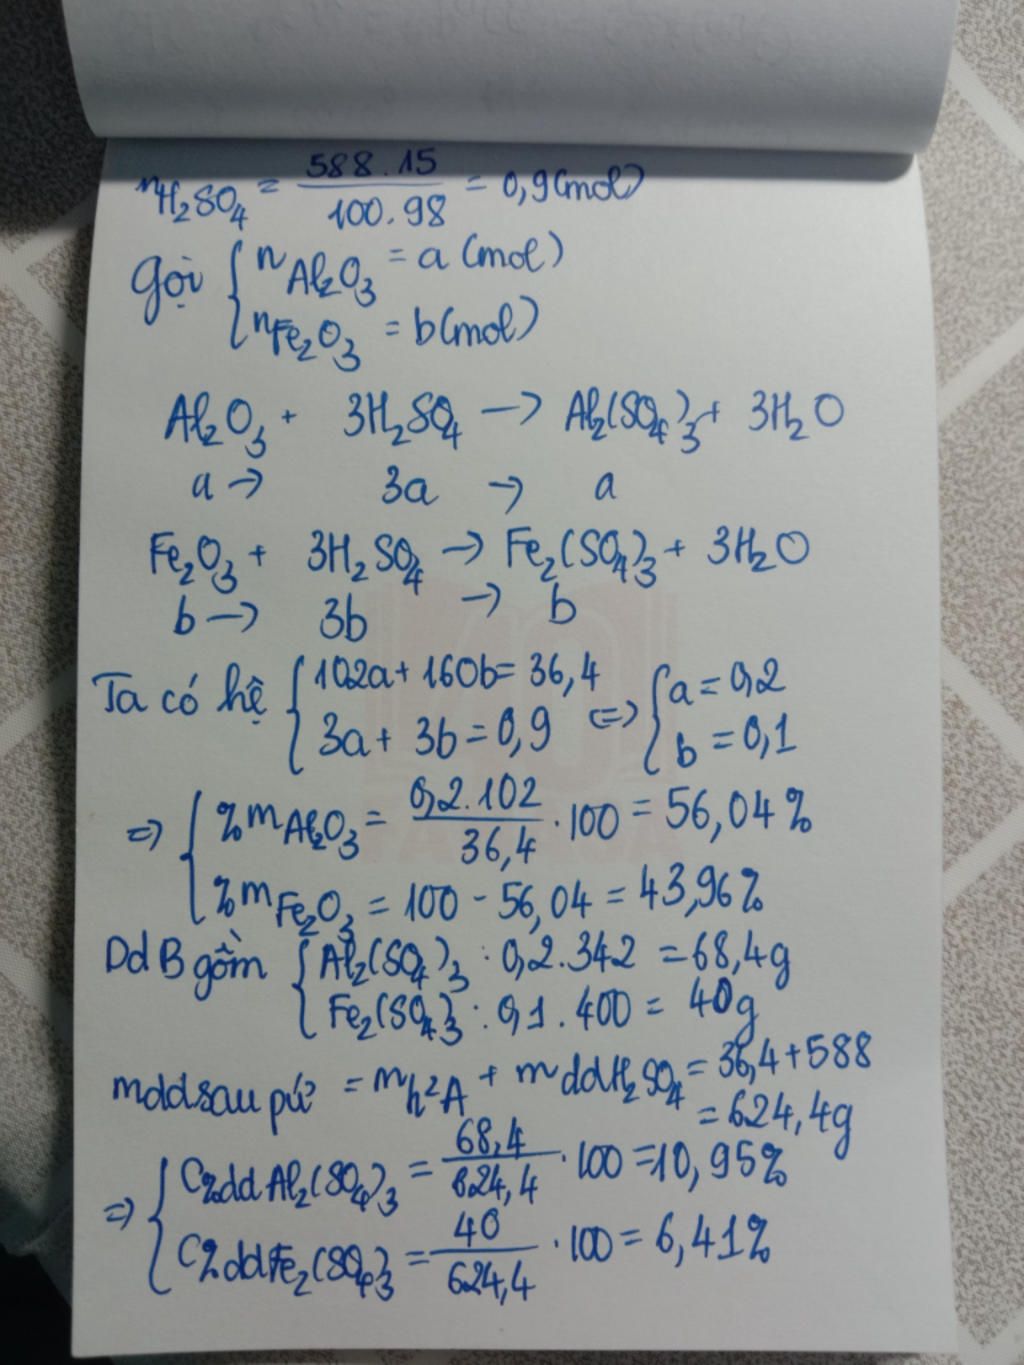 nH₂SO₄ = 588.15/100.98 = 0,9 (mol)
Gọi { nAl₂O₃ = a (mol)
nFe₂O₃ = b (mol)
Al₂O₃ + 3H₂SO₄ → Al₂(SO₄)₃ + 3H₂O
a → 3a → a
Fe₂O₃ + 3H₂SO₄ → Fe₂(SO₄)₃ + 3H₂O
b → 3b → b
Ta có hệ { 102a + 160b = 36,4 ⇔ { a = 0,2
3a + 3b = 0,9 b = 0,1
⇒ { %mAl₂O₃ = 0,2.102/36,4 . 100 = 56,04%
%mFe₂O₃ = 100 - 56,04 = 43,96%
Dd B gồm { Al₂(SO₄)₃ : 0,2.342 = 68,4g
Fe₂(SO₄)₃ : 0,1.400 = 40g
mdd sau pứ = mh²A + mddH₂SO₄ = 36,4 + 588
= 624,4g
⇒ { C%dd Al₂(SO₄)₃ = 68,4/624,4 . 100 = 10,95%
C%dd Fe₂(SO₄)₃ = 40/624,4 . 100 = 6,41%